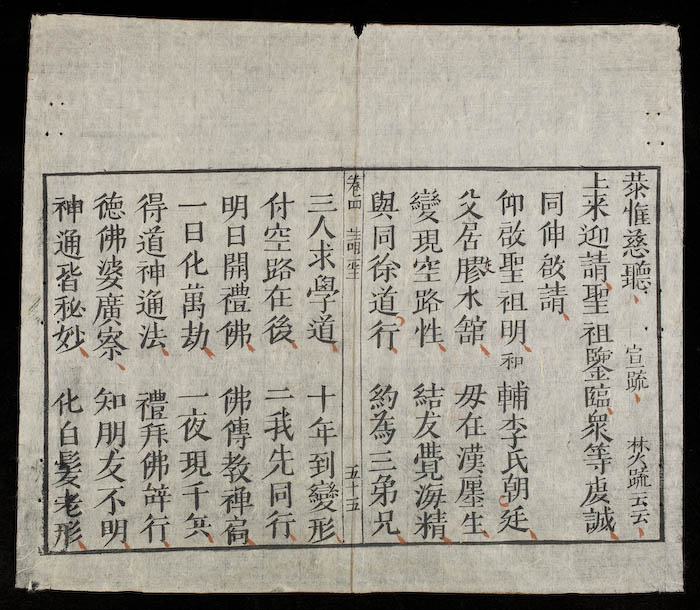 恭惟慈聽 宣疏 林久疏云云
上来迎請聖祖鑒臨衆等虔誠
同伸啟請
仰啟聖祖明和 輔李氏朝廷
父居膠水舘 毋在漢𢌅生
變現空路性 結友覺海精
與同徐道行 約為三弟兄
卷四 五十五
三人求學道 十年到變形
付空路在後 二我先同行
明日開禮佛 佛傳教禅宿
一日化萬劫 一夜現千兵
得道神通法 禮拜佛辞行
德佛婆廣察 知朋友不明
神通皆秘妙 化白髪老形